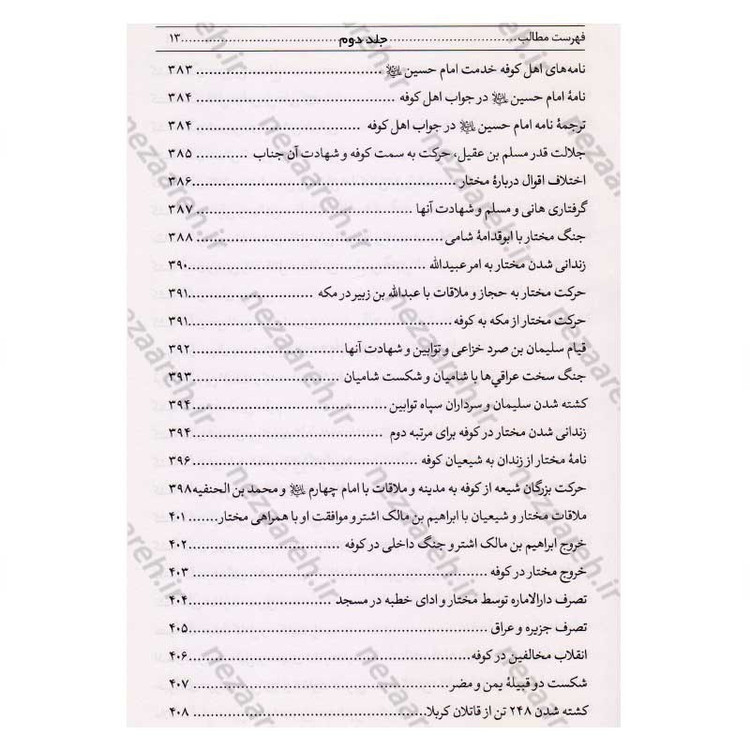 فهرست مطالب ........ جلد دوم ........ ۱۳
نامه‌های اهل کوفه خدمت امام حسین ﷷ ........ ۳۸۳
نامهٔ امام حسین ﷷ در جواب اهل کوفه ........ ۳۸۴
ترجمهٔ نامه امام حسین ﷷ در جواب اهل کوفه ........ ۳۸۴
جلالت قدر مسلم بن عقیل، حرکت به سمت کوفه و شهادت آن جناب ........ ۳۸۵
اختلاف اقوال دربارهٔ مختار ........ ۳۸۶
گرفتاری هانی و مسلم و شهادت آنها ........ ۳۸۷
جنگ مختار با ابوقدامهٔ شامی ........ ۳۸۸
زندانی شدن مختار به امر عبیدالله ........ ۳۹۰
حرکت مختار به حجاز و ملاقات با عبدالله بن زبیر در مکه ........ ۳۹۱
حرکت مختار از مکه به کوفه ........ ۳۹۱
قیام سلیمان بن صرد خزاعی و توّابین و شهادت آنها ........ ۳۹۲
جنگ سخت عراقی‌ها با شامیان و شکست شامیان ........ ۳۹۳
کشته شدن سلیمان و سرداران سپاه توابین ........ ۳۹۴
زندانی شدن مختار در کوفه برای مرتبه دوم ........ ۳۹۴
نامهٔ مختار از زندان به شیعیان کوفه ........ ۳۹۶
حرکت بزرگان شیعه از کوفه به مدینه و ملاقات با امام چهارم ﷷ و محمد بن الحنفیه ۳۹۸
ملاقات مختار و شیعیان با ابراهیم بن مالک اشتر و موافقت او با همراهی مختار ........ ۴۰۱
خروج ابراهیم بن مالک اشتر و جنگ داخلی در کوفه ........ ۴۰۲
خروج مختار در کوفه ........ ۴۰۳
تصرف دارالاماره توسط مختار و ادای خطبه در مسجد ........ ۴۰۴
تصرف جزیره و عراق ........ ۴۰۵
انقلاب مخالفین در کوفه ........ ۴۰۶
شکست دو قبیلهٔ یمن و مضر ........ ۴۰۷
کشته شدن ۲۴۸ تن از قاتلان کربلا ........ ۴۰۸
nezaareh.ir